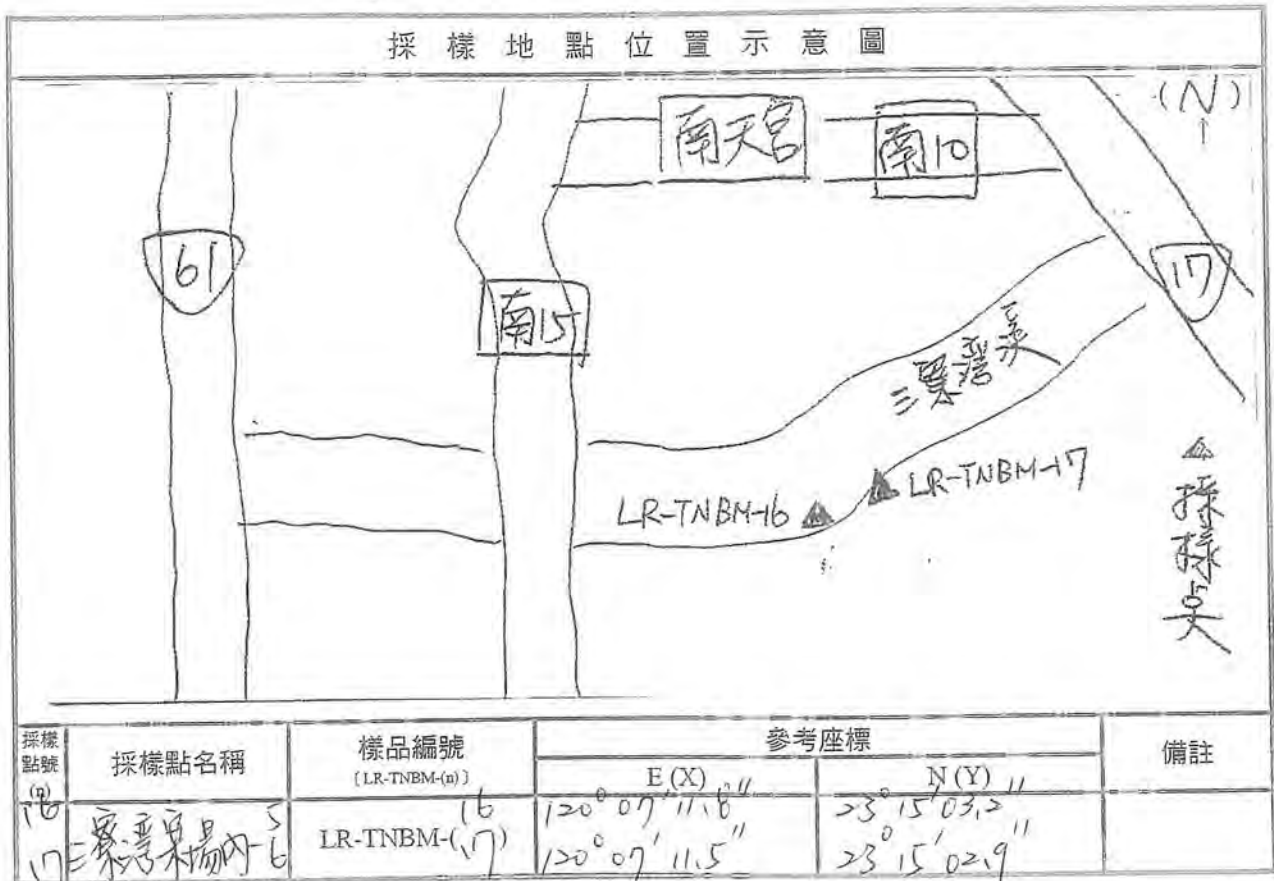 採樣地點位置示意圖
(N)
↑
南天宮
南10
61
17
南15
三寮灣溪
LR-TNBM-16
LR-TNBM-17
採樣点
採樣點號(n)
採樣點名稱
樣品編號
[LR-TNBM-(n)]
參考座標
E (X)
N (Y)
備註
16
17
三寮灣案場內-5
6
LR-TNBM-(16
17)
120° 07' 11.8"
23° 15' 03.2"
120° 07' 11.5"
23° 15' 02.9"